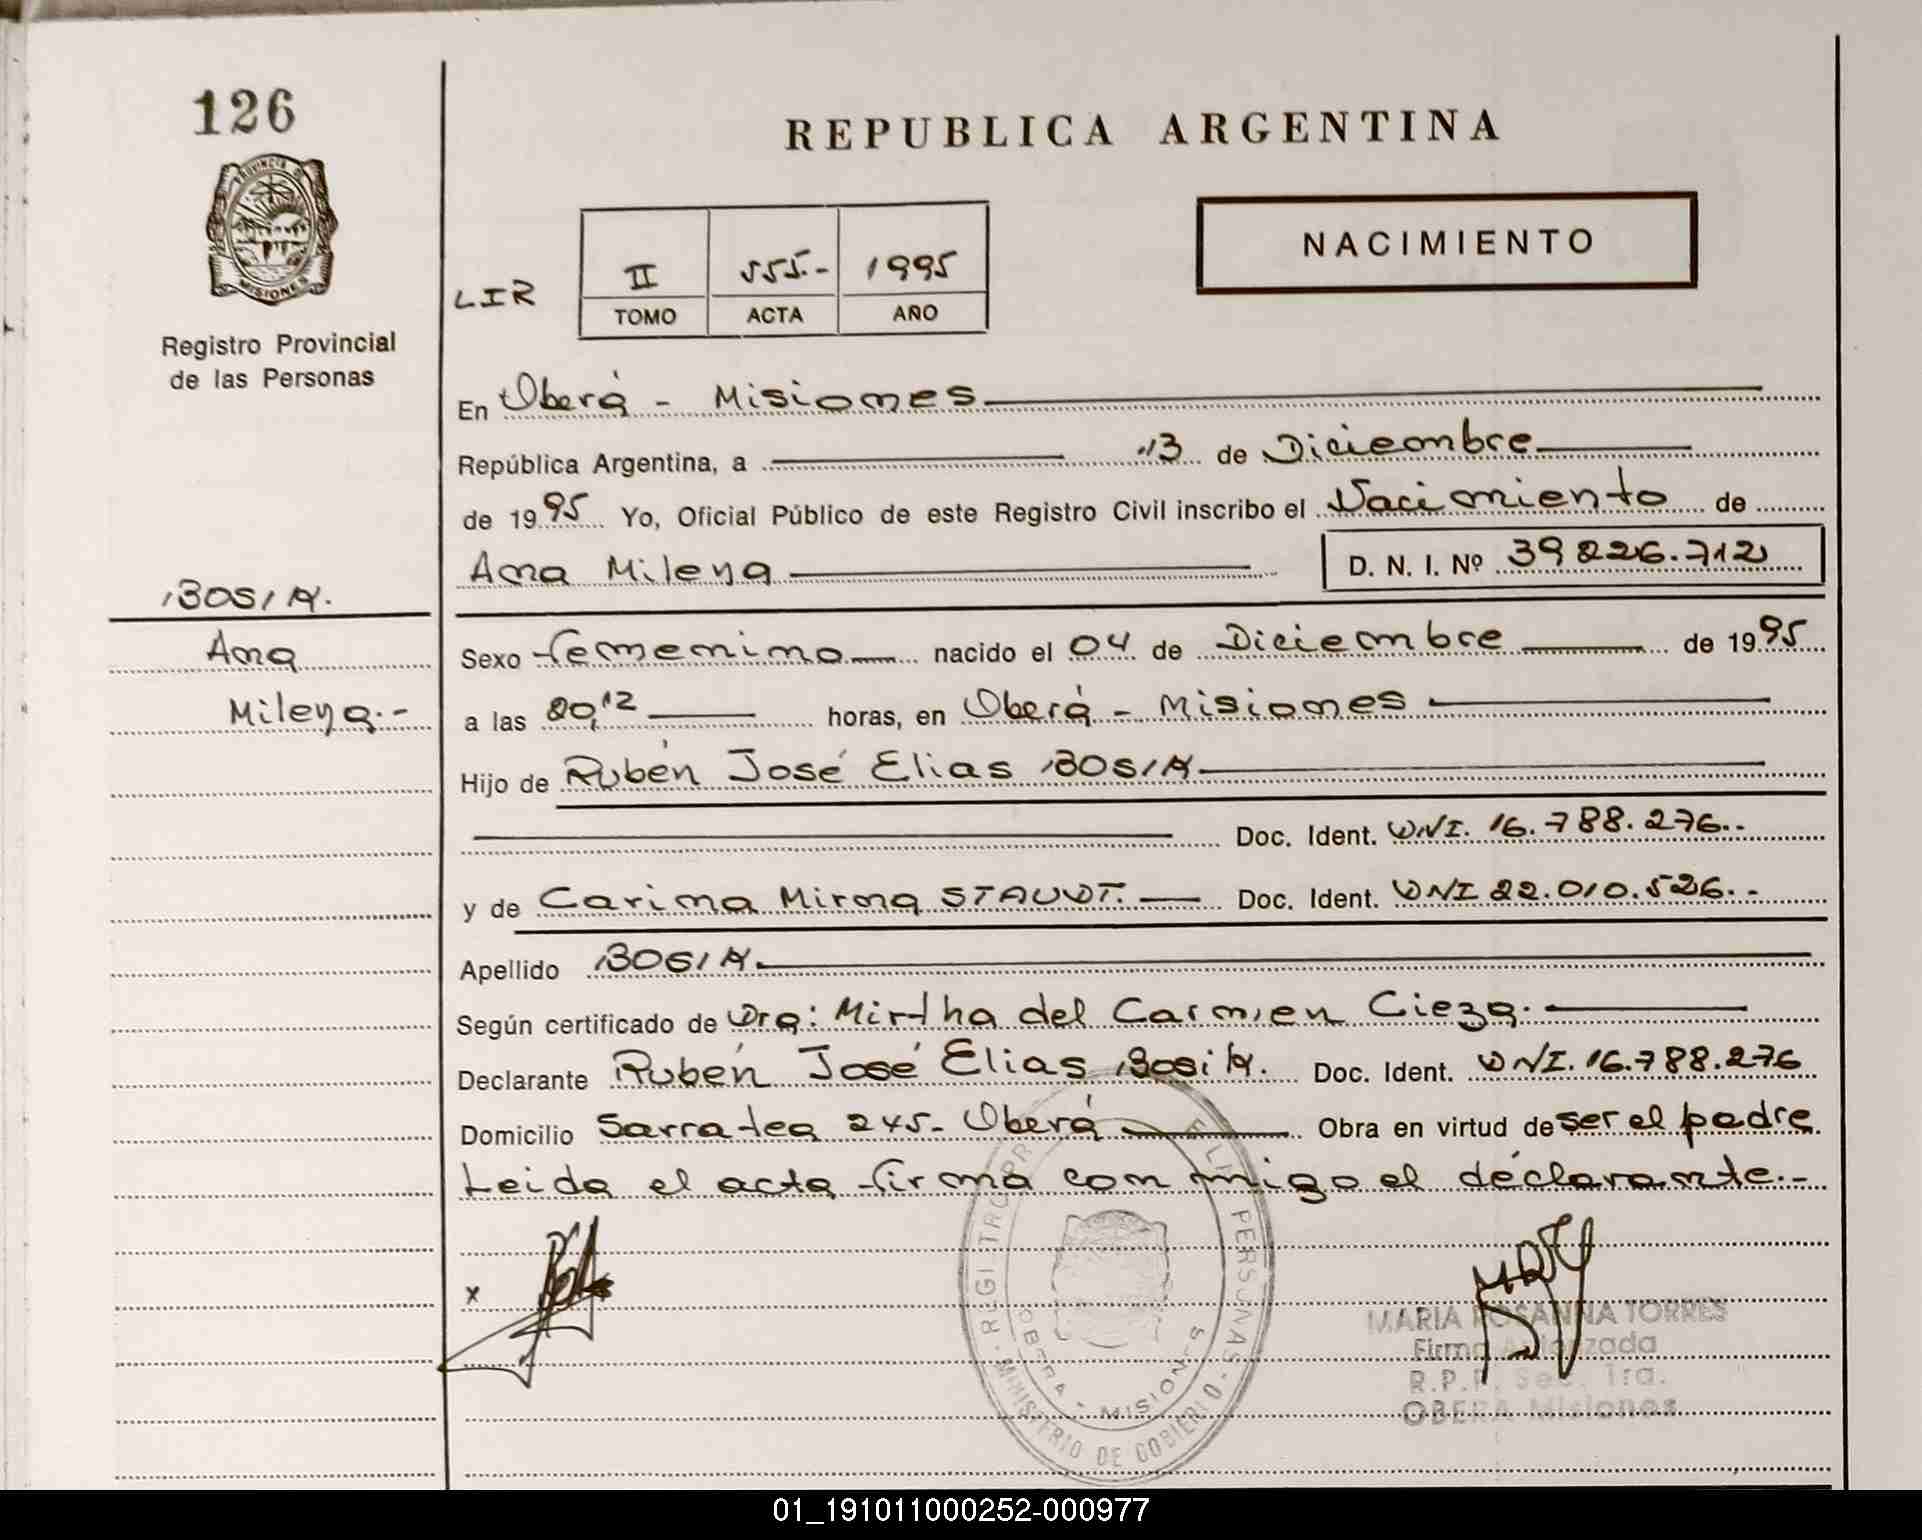 126
PROVINCIA D
MISIONES
Registro Provincial
de las Personas
REPUBLICA ARGENTINA
LIR
II 555.- 1995
TOMO ACTA AÑO
NACIMIENTO
En Oberá - Misiones
República Argentina, a 13 de Diciembre
de 1995 Yo, Oficial Público de este Registro Civil inscribo el Nacimiento de
Ana Milena D. N. I. Nº 39226.712
BOSIK.
Ana
Milena.-
Sexo femenino nacido el 04 de Diciembre de 1995
a las 20,12 horas, en Oberá - Misiones
Hijo de Rubén José Elias BOSIK
Doc. Ident. DNI. 16.788.276.-
y de Carina Mirna STAUDT. Doc. Ident. DNI 22.010.526.-
Apellido BOSIK.
Según certificado de Dra: Mirtha del Carmen Cieza.
Declarante Rubén José Elias BosiK. Doc. Ident. DNI. 16.788.276
Domicilio Sarratea 245- Oberá Obra en virtud de ser el padre
Leida el acta firma con migo el declarante.-
x
REGISTRO PR
E LAS PERSONAS
MINISTERIO DE GOBIERNO
OBERA - MISIONES
MARIA ROSANNA TORRES
Firma Autorizada
R.P.P. Sec. 1ra.
OBERA Misiones
01_191011000252-000977